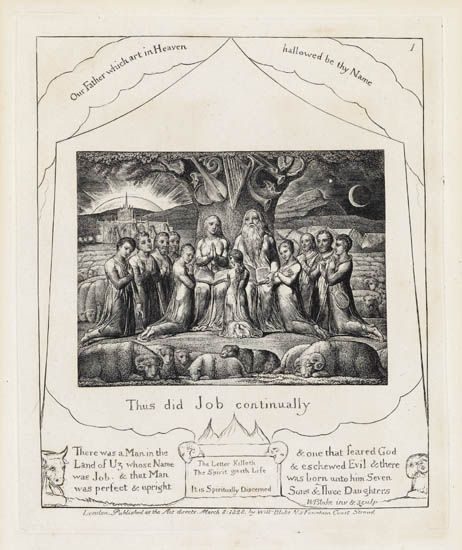 1
Our Father which art in Heaven
hallowed be thy Name
Thus did Job continually
There was a Man in the
Land of Uz whose Name
was Job. & that Man
was perfect & upright
The Letter Killeth
The Spirit giveth Life
It is Spiritually Discerned
& one that feared God
& eschewed Evil & there
was born unto him Seven
Sons & Three Daughters
WBlake inv & sculp
London. Published as the Act directs. March 8: 1825. by Will: Blake N3 Fountain Court Strand